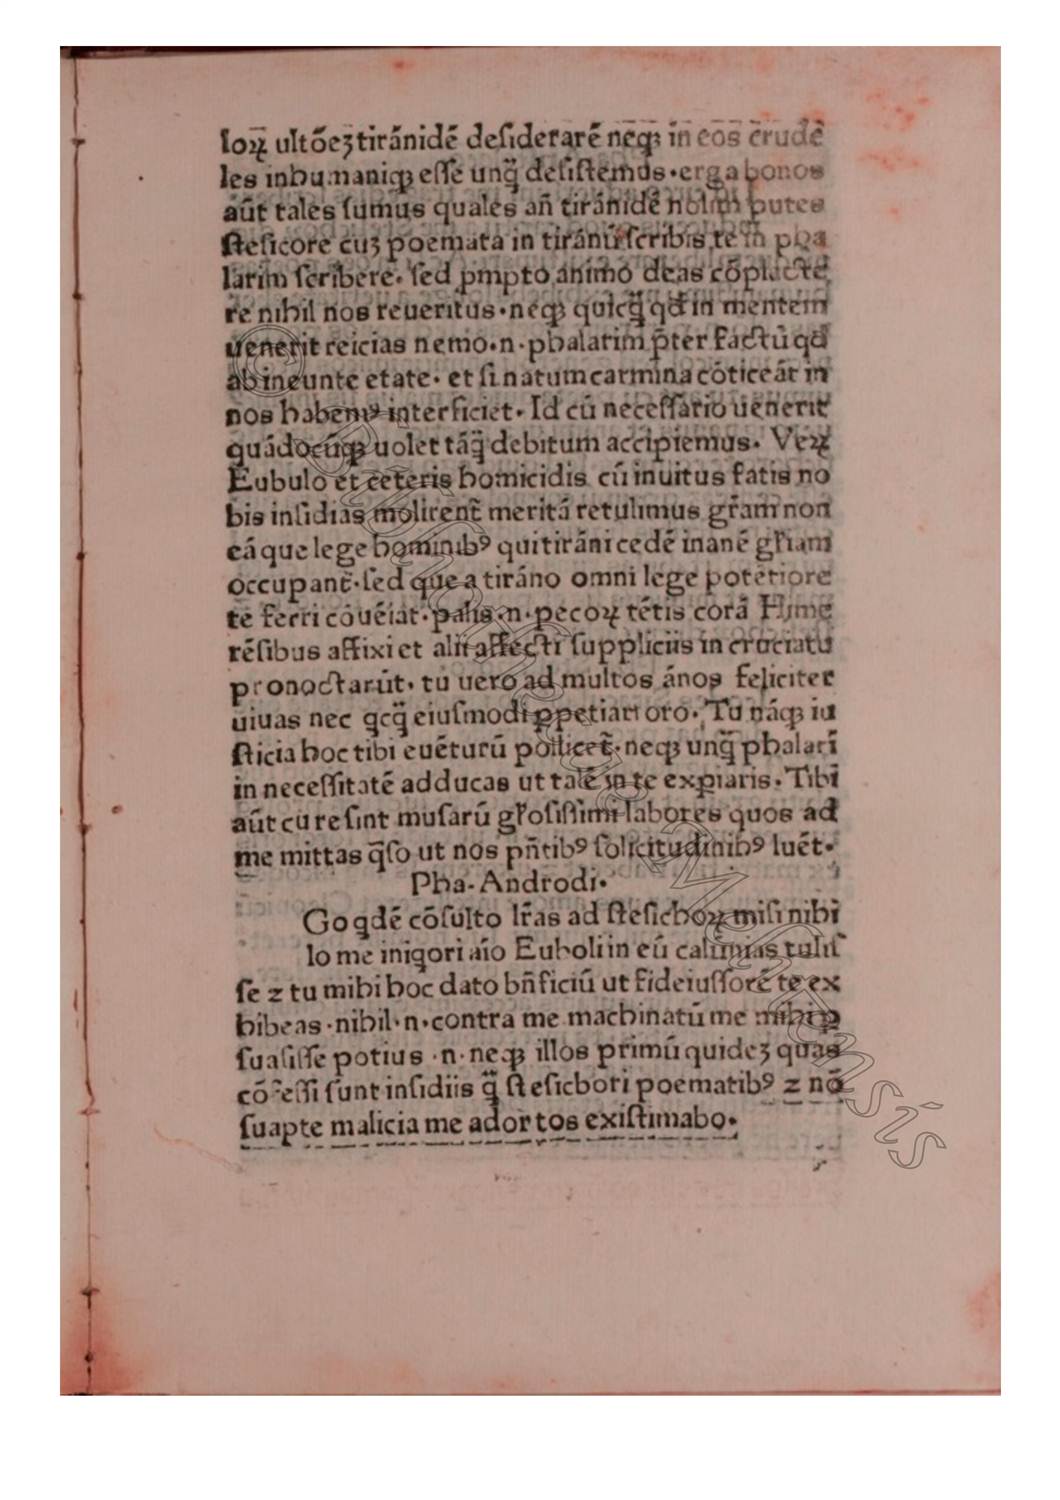 loꝝ ultõeʒ tiránidẽ desiderarẽ neqꝫ in eos crudẽ
les inhumaniqꝫ esse unq̃ desistemus·erga bonos
aũt tales sumus quales añ tiránidẽ nolim putes
stesicore cuʒ poemata in tiránũ scribis te in pha
larim scribere· sed ꝓmpto ánimo deas cõplecte
re nihil nos reueritus·neqꝫ quicq̃ qd̃ in mentem
uenerit reicias nemo·n·phalarim p̃ter factũ qd̃
ab ineunte etate· et si natum carmina cõticeãt in
nos habemꝰ interficiet· Id cũ necessario uenerit
quãdocũqꝫ uolet tãq̃ debitum accipiemus· Veꝝ
Eubulo et ceteris homicidis cũ inuitus fatis no
bis insidias molirent̃ meritã retulimus gr̃am non
eã que lege hominibꝰ qui tiráni cedẽ inanẽ gl̃iam
occupant̃·sed que a tiráno omni lege potẽtiore
te ferri cõuẽiat·palis·n·pecoꝝ tẽtis corã Hime
rẽsibus affixi et alii affecti suppliciis in cruciatu
pronoctarũt· tu uero ad multos ános feliciter
uiuas nec qcq̃ eiusmodi ꝑpetiari oro· Tu nãqꝫ iu
sticia hoc tibi euẽturũ pollicet̃·neqꝫ unq̃ phalarĩ
in necessitatẽ adducas ut talẽ in te expiaris· Tibi
aũt cure sint musarũ gl̃osissimi labores quos ad
me mittas q̃so ut nos pñtibꝰ solicitudinibꝰ luẽt·
Pha· Androdi·
Go qdẽ cõsulto lr̃as ad stesichoꝝ misi nihi
lo me iniqori aĩo Euboli in eũ calũnias tulis
se ⁊ tu mihi hoc dato bñficiũ ut fideiussorẽ te ex
hibeas·nihil·n·contra me machinatũ me mihi ꝑ
suasisse potius·n·neqꝫ illos primũ quideʒ quas
cõfessi sunt insidiis q̃ stesichori poematibꝰ ⁊ nõ
suapte malicia me adortos existimabo·
© Bibliotheca Augustensis